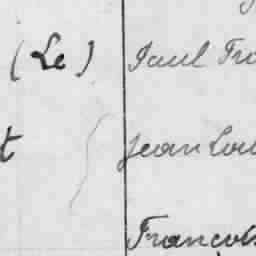 (Le) Paul Fra
t Jean Lou
François